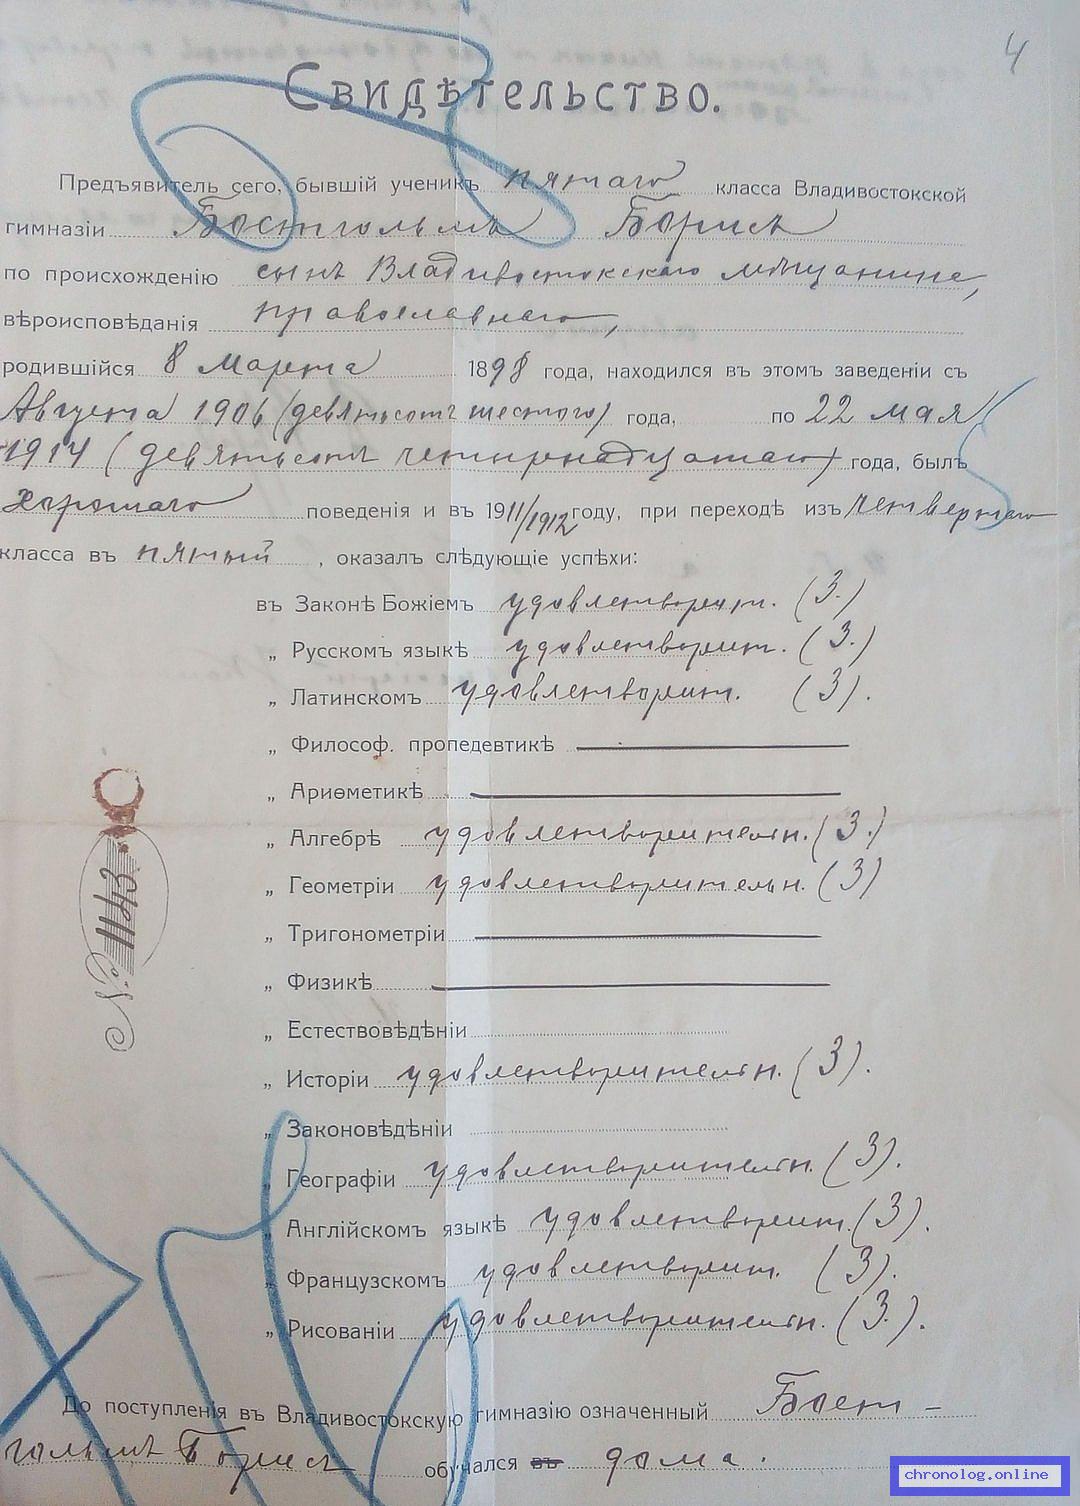 4
Свидѣтельство.
Предъявитель сего, бывшій ученикъ пятаго класса Владивостокской
гимназіи Бостгольмъ Борисъ
по происхожденію сынъ Владивостокскаго мѣщанина,
вѣроисповѣданія православнаго,
родившійся 8 марта 1898 года, находился въ этомъ заведеніи съ
Августа 1906 (девятьсотъ шестого) года, по 22 мая
1914 (девятьсотъ четырнадцатаго) года, былъ
хорошаго поведенія и въ 1911/1912 году, при переходѣ изъ четвертаго
класса въ пятый, оказалъ слѣдующіе успѣхи:
въ Законѣ Божіемъ удовлетворит. (3.)
„ Русскомъ языкѣ удовлетворит. (3.)
„ Латинскомъ удовлетворит. (3).
„ Философ. пропедевтикѣ
„ Ариѳметикѣ
„ Алгебрѣ удовлетворительн. (3.)
„ Геометріи удовлетворительн. (3)
„ Тригонометріи
„ Физикѣ
„ Естествовѣдѣніи
„ Исторіи удовлетворительн. (3).
„ Законовѣдѣніи
„ Географіи удовлетворительн. (3).
„ Англійскомъ языкѣ удовлетворит. (3).
„ Французскомъ удовлетворит. (3).
„ Рисованіи удовлетворительн. (3.).
До поступленія въ Владивостокскую гимназію означенный Бост-
гольмъ Борисъ обучался въ дома.
chronolog.online